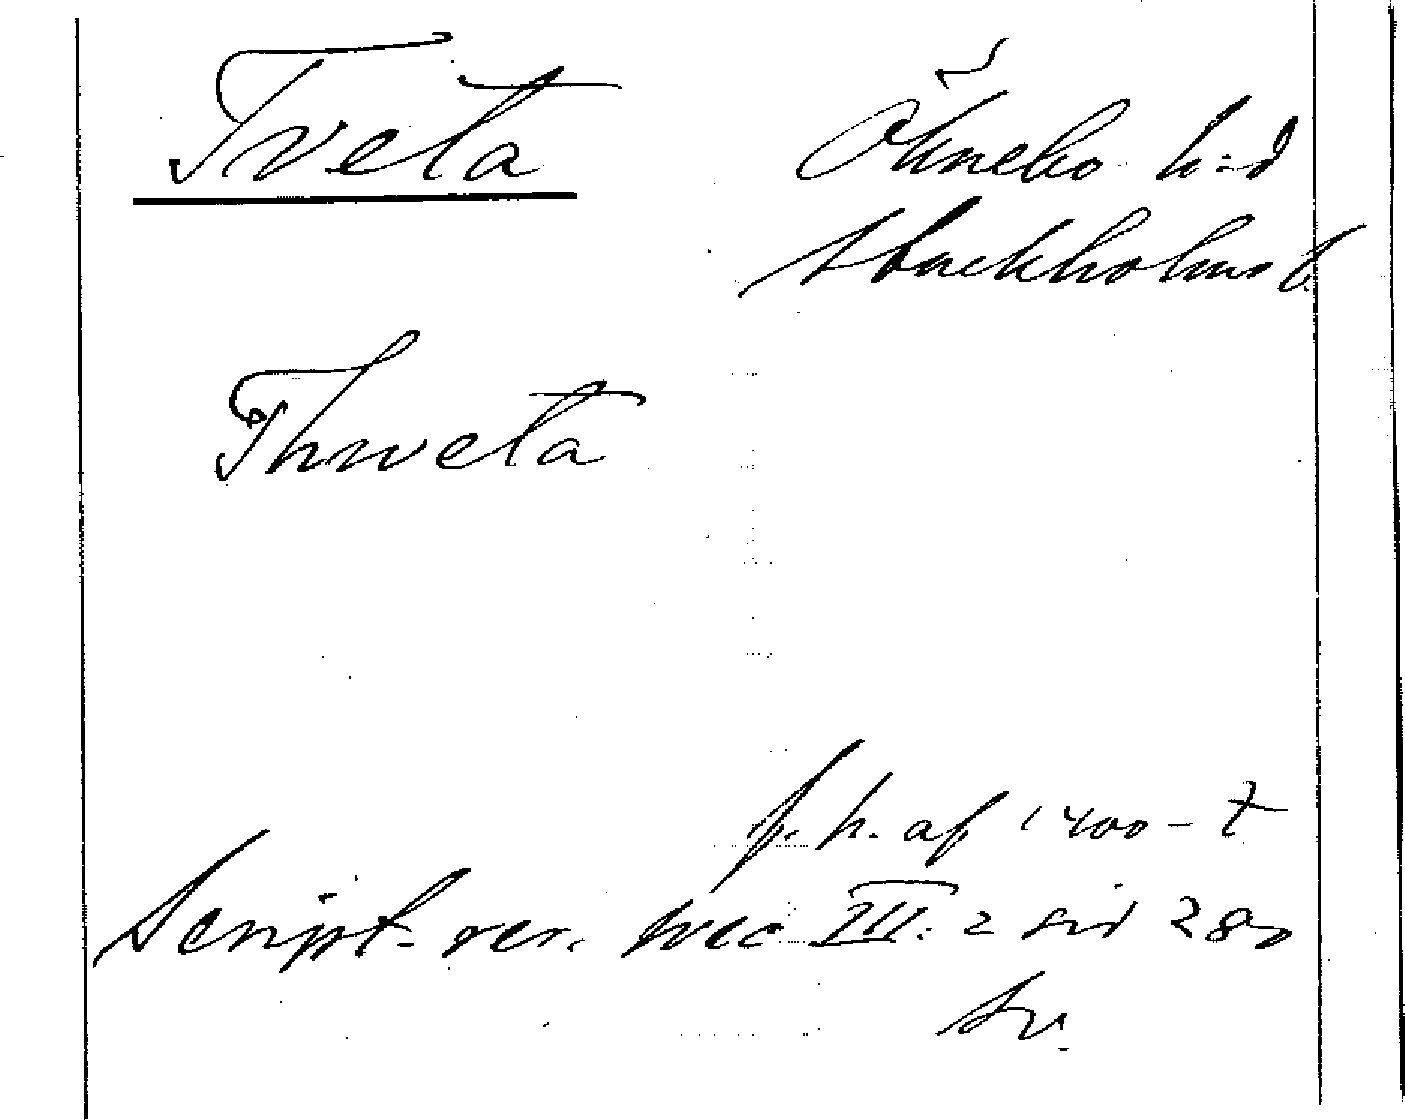 Tveta
Öknebo h:d
Stockholms l.
Thweta
f. h. af 1400-t
Script. rer. svec III: 2 sid 280
Sv.